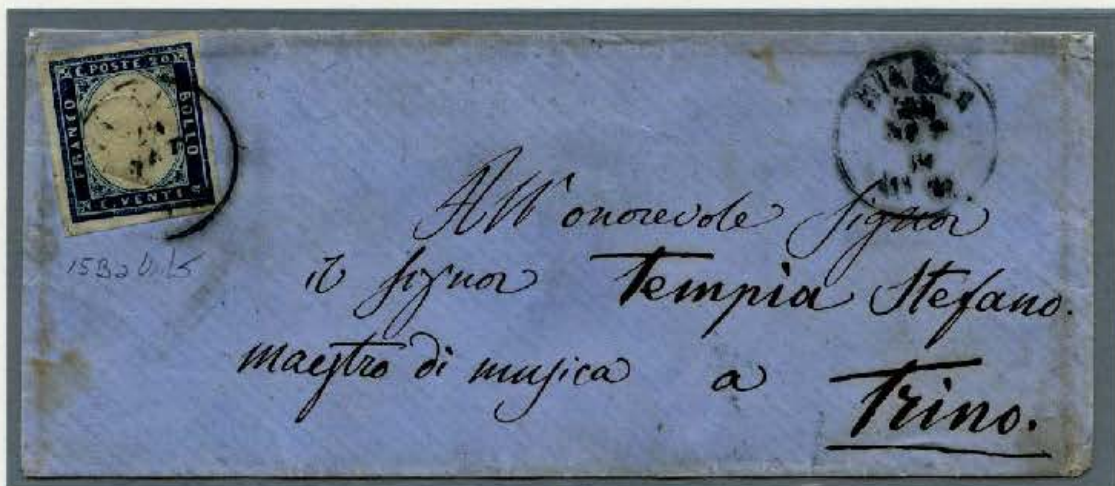 C. POSTE 20
FRANCO
BOLLO
C. VENTI
All' onorevole Signor
il Signor Tempia Stefano.
maestro di musica a
Trino.